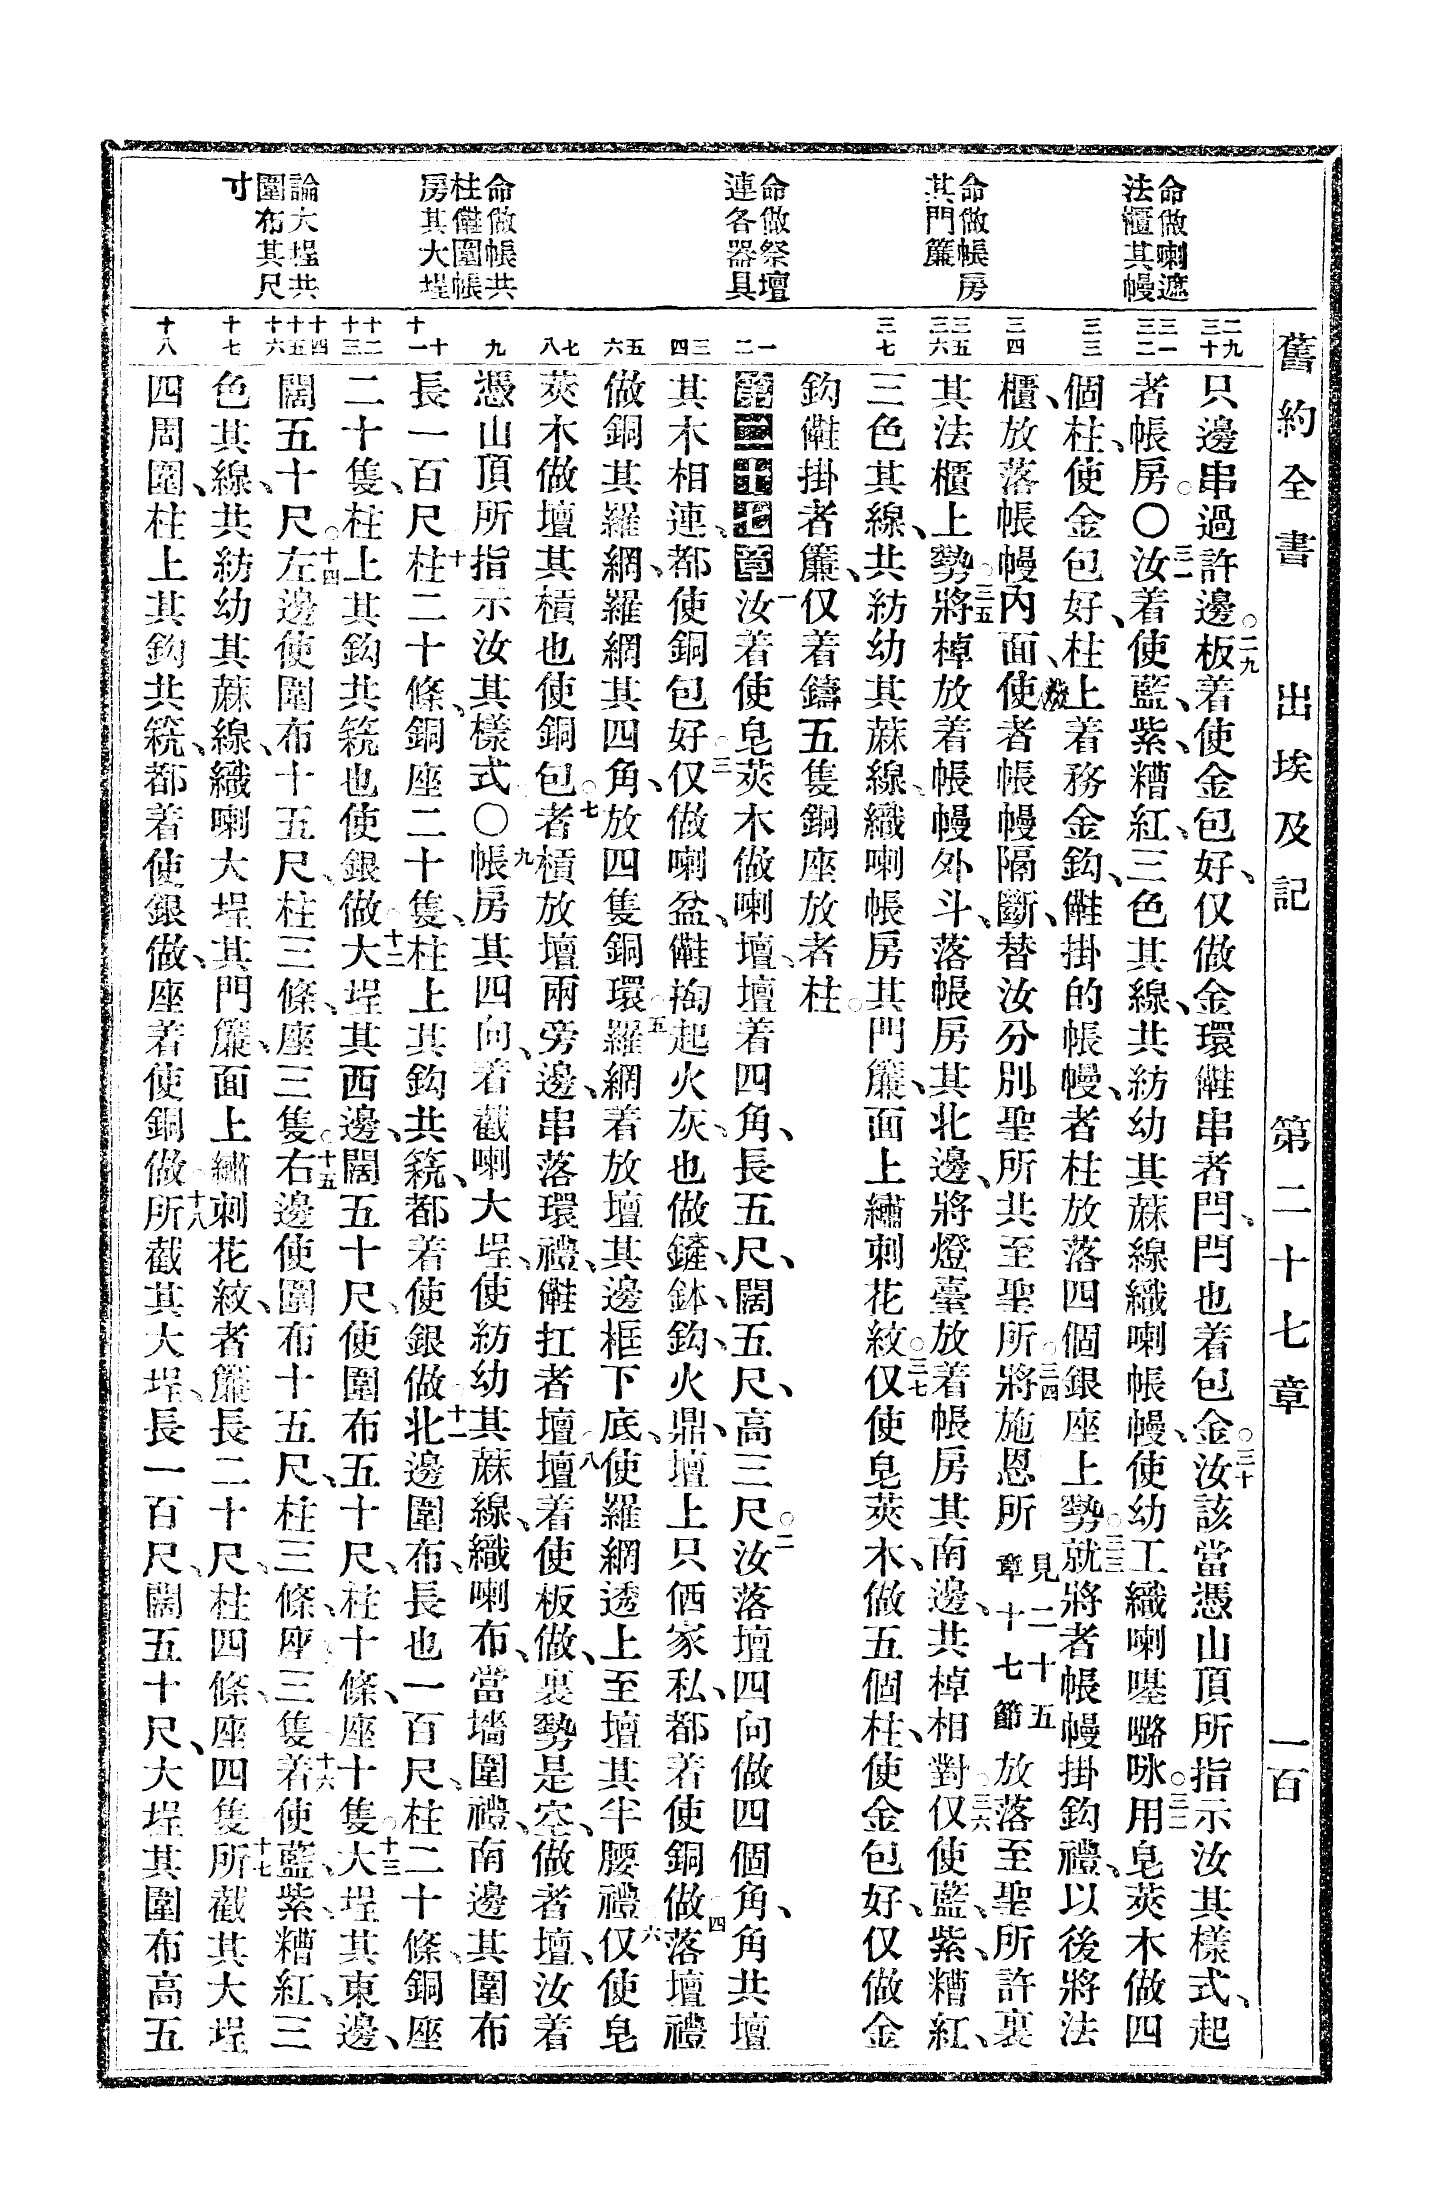 舊約全書 出埃及記 第二十七章 一百
命做喇遮
法櫃其幔
命做帳房
其門簾
命做祭壇
連各器具
命做帳共
柱㒤圍帳
房其大埕
論大埕共
圍布其尺
寸
二九 三十 三一 三二 三三 三四 三五 三六 三七 一 二 三 四 五 六 七 八 九 十 十一 十二 十三 十四 十五 十六 十七 十八
只邊串過許邊。二九板着使金包好、仅做金環㒤串者閂、閂也着包金。三十汝該當憑山頂所指示汝其樣式、起
者帳房。〇三一汝着使藍、紫、糟紅、三色其線、共紡幼其蔴線織喇帳幔、使幼工織喇𡅏嚕㕸。三二用皂莢木做四
個柱、使金包好、柱上着務金鈎、㒤掛的帳幔、者柱放落四個銀座上勢。三三就將者帳幔掛鈎禮、以後將法
櫃、放落帳幔內面、使者帳幔隔斷、替汝分別聖所共至聖所。三四將施恩所見二十五章十七節放落至聖所許裏
其法櫃上勢。三五將棹放着帳幔外斗、落帳房其北邊、將燈臺放着帳房其南邊、共棹相對。三六仅使藍、紫、糟紅、
三色其線、共紡幼其蔴線織喇帳房其門簾、面上繡刺花紋。三七仅使皂莢木、做五個柱、使金包好、仅做金
鈎㒤掛者簾、仅着鑄五隻銅座放者柱。
第二十七章 一汝着使皂莢木做喇壇、壇着四角、長五尺、闊五尺、高三尺。二汝落壇四向做四個角、角共壇
其木相連、都使銅包好。三仅做喇盆、㒤掏起火灰、也做鏟、鉢、鈎、火鼎、壇上只𠈁家私、都着使銅做。四落壇禮
做銅其羅網、羅網其四角、放四隻銅環。五羅網着放壇其邊框下底、使羅網透上至壇其半腰禮。六仅使皂
莢木做壇其槓也使銅包。七者槓放壇兩旁邊、串落環禮、㒤扛者壇。八壇着使板做、裏勢是空、做者壇、汝着
憑山頂所指示汝其樣式。〇九帳房其四向、着截喇大埕、使紡幼其蔴線、織喇布、當墻圍禮、南邊其圍布
長一百尺。十柱二十條、銅座二十隻、柱上其鈎共箍、都着使銀做。十一北邊圍布、長也一百尺、柱二十條、銅座
二十隻、柱上其鈎共箍也使銀做。十二大埕其西邊、闊五十尺、使圍布五十尺、柱十條、座十隻。十三大埕其東邊、
闊五十尺。十四左邊使圍布十五尺、柱三條、座三隻。十五右邊使圍布十五尺、柱三條、座三隻。十六着使藍、紫、糟紅、三
色其線、共紡幼其蔴線、織喇大埕其門簾、面上繡刺花紋、者簾長二十尺、柱四條、座四隻。十七所截其大埕
四周圍、柱上其鈎共箍、都着使銀做、座着使銅做。十八所截其大埕、長一百尺、闊五十尺、大埕其圍布高五